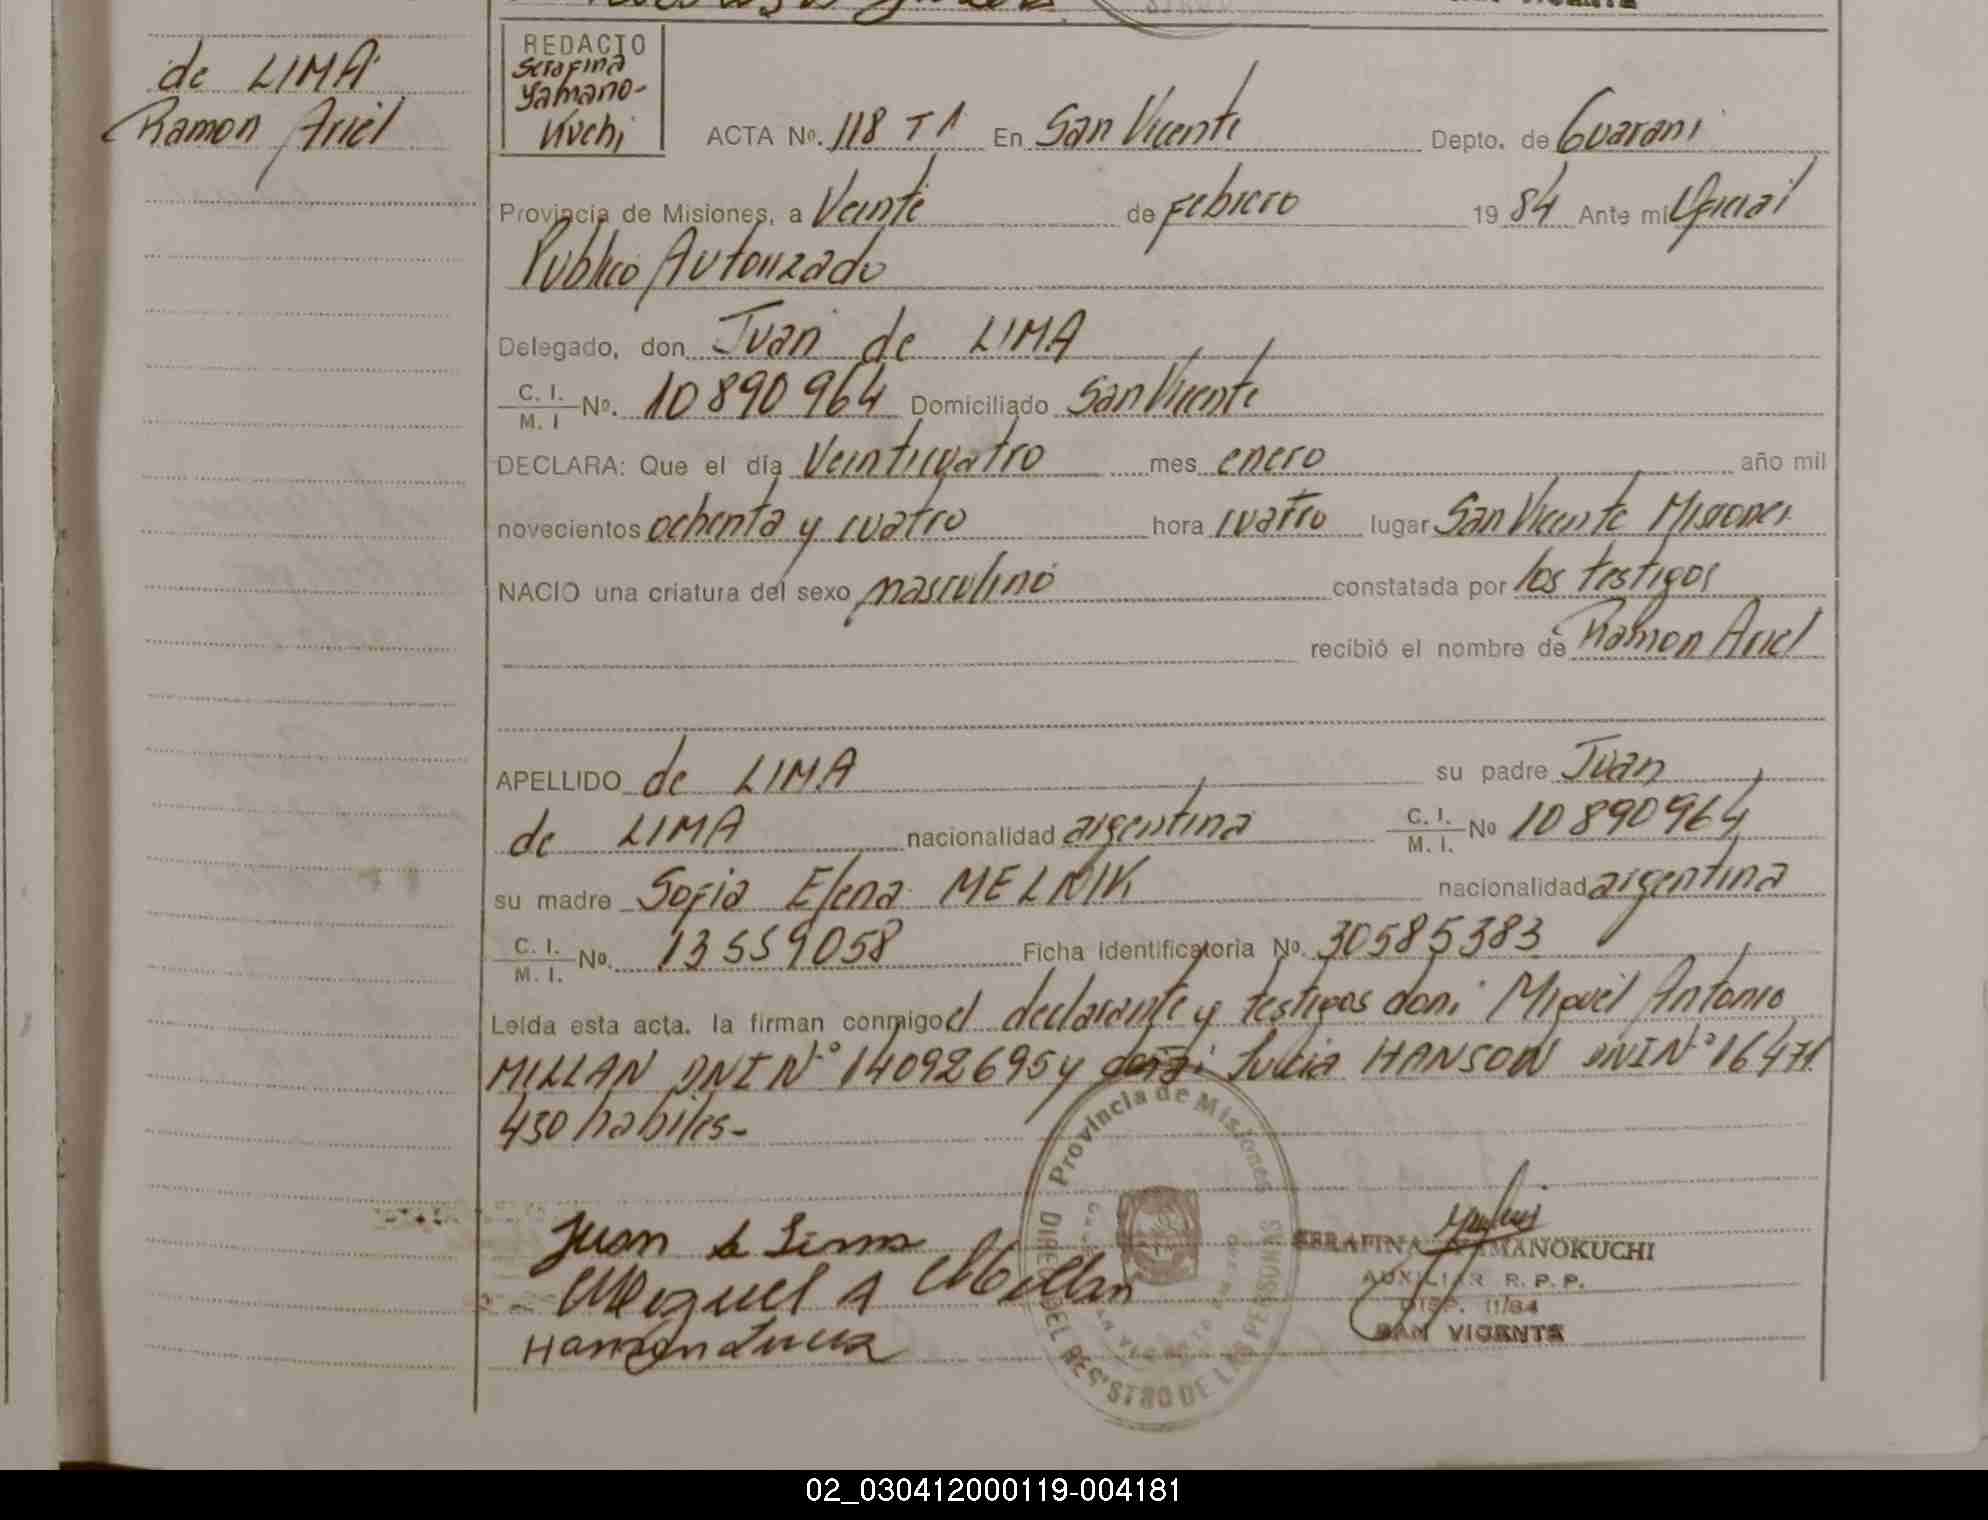 de LIMA
Ramon Ariel
REDACTO
Serafina
Yamano-
Kuchi
ACTA Nº. 118 T1 En San Vicente Depto. de Guarani
Provincia de Misiones, a Veinte de Febrero 19 84 Ante mi Oficial
Publico Autorizado
Delegado, don Juan de LIMA
C. I. / M. I Nº. 10890964 Domiciliado San Vicente
DECLARA: Que el día Veinticuatro mes enero año mil
novecientos ochenta y cuatro hora cuatro lugar San Vicente Misiones
NACIO una criatura del sexo masculino constatada por los testigos
recibió el nombre de Ramon Ariel
APELLIDO de LIMA su padre Juan
de LIMA nacionalidad argentina C. I. / M. I. Nº 10890964
su madre Sofia Elena MELNIK nacionalidad argentina
C. I. / M. I. Nº. 13559058 Ficha identificatoria Nº. 30585383
Leída esta acta. la firman conmigo el declarante y testigos don: Miguel Antonio
MILLAN DNI Nº 14092695 y Lucia HANSON DNI Nº 16471.
450 habiles-
Provincia de Misiones
DEL REGISTRO DE LAS PERSONAS
Juan de Lima
Miguel A Millan
Hanson Lucia
SERAFINA YAMANOKUCHI
AUXILIAR R. P. P.
DISP. 11/84
SAN VICENTE
02_030412000119-004181